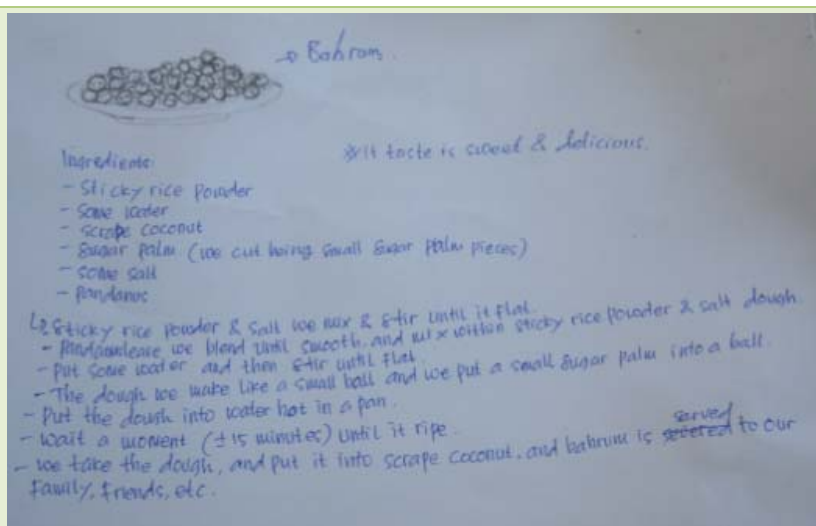 → Bahrom.
* It taste is sweet & delicious.
Ingredients:
- Sticky rice powder
- Some water
- scrape coconut
- Sugar palm (we cut being small sugar palm pieces)
- some salt
- Pandanus
↳ Sticky rice powder & salt we mix & stir until it flat.
- we blend until smooth, and mix within sticky rice powder & salt dough.
- Put some water and then stir until flat.
- The dough we make like a small ball and we put a small sugar palm into a ball.
- Put the dough into water hot in a pan.
- Wait a moment (±15 minutes) until it ripe.
- we take the dough, and put it into scrape coconut, and bahrum is served to our
family, friends, etc.